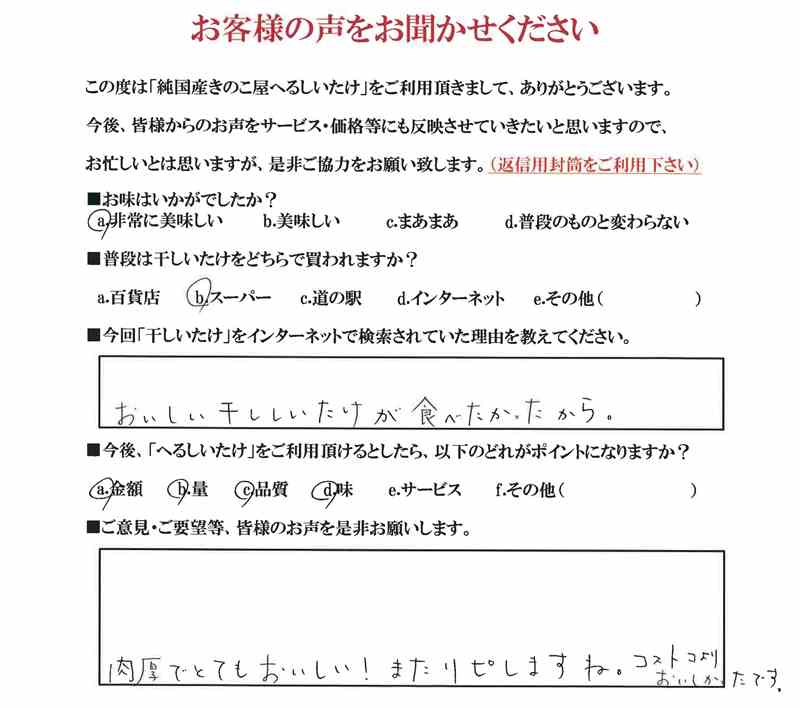 お客様の声をお聞かせください
この度は「純国産きのこ屋へるしいたけ」をご利用頂きまして、ありがとうございます。
今後、皆様からのお声をサービス・価格等にも反映させていきたいと思いますので、
お忙しいとは思いますが、是非ご協力をお願い致します。(返信用封筒をご利用下さい)
■お味はいかがでしたか?
a.非常に美味しい b.美味しい c.まあまあ d.普段のものと変わらない
■普段は干しいたけをどちらで買われますか?
a.百貨店 b.スーパー c.道の駅 d.インターネット e.その他( )
■今回「干しいたけ」をインターネットで検索されていた理由を教えてください。
おいしい干ししいたけが食べたかったから。
■今後、「へるしいたけ」をご利用頂けるとしたら、以下のどれがポイントになりますか?
a.金額 b.量 c.品質 d.味 e.サービス f.その他( )
■ご意見・ご要望等、皆様のお声を是非お願いします。
肉厚でとてもおいしい!またリピしますね。コストコより
おいしかったです。